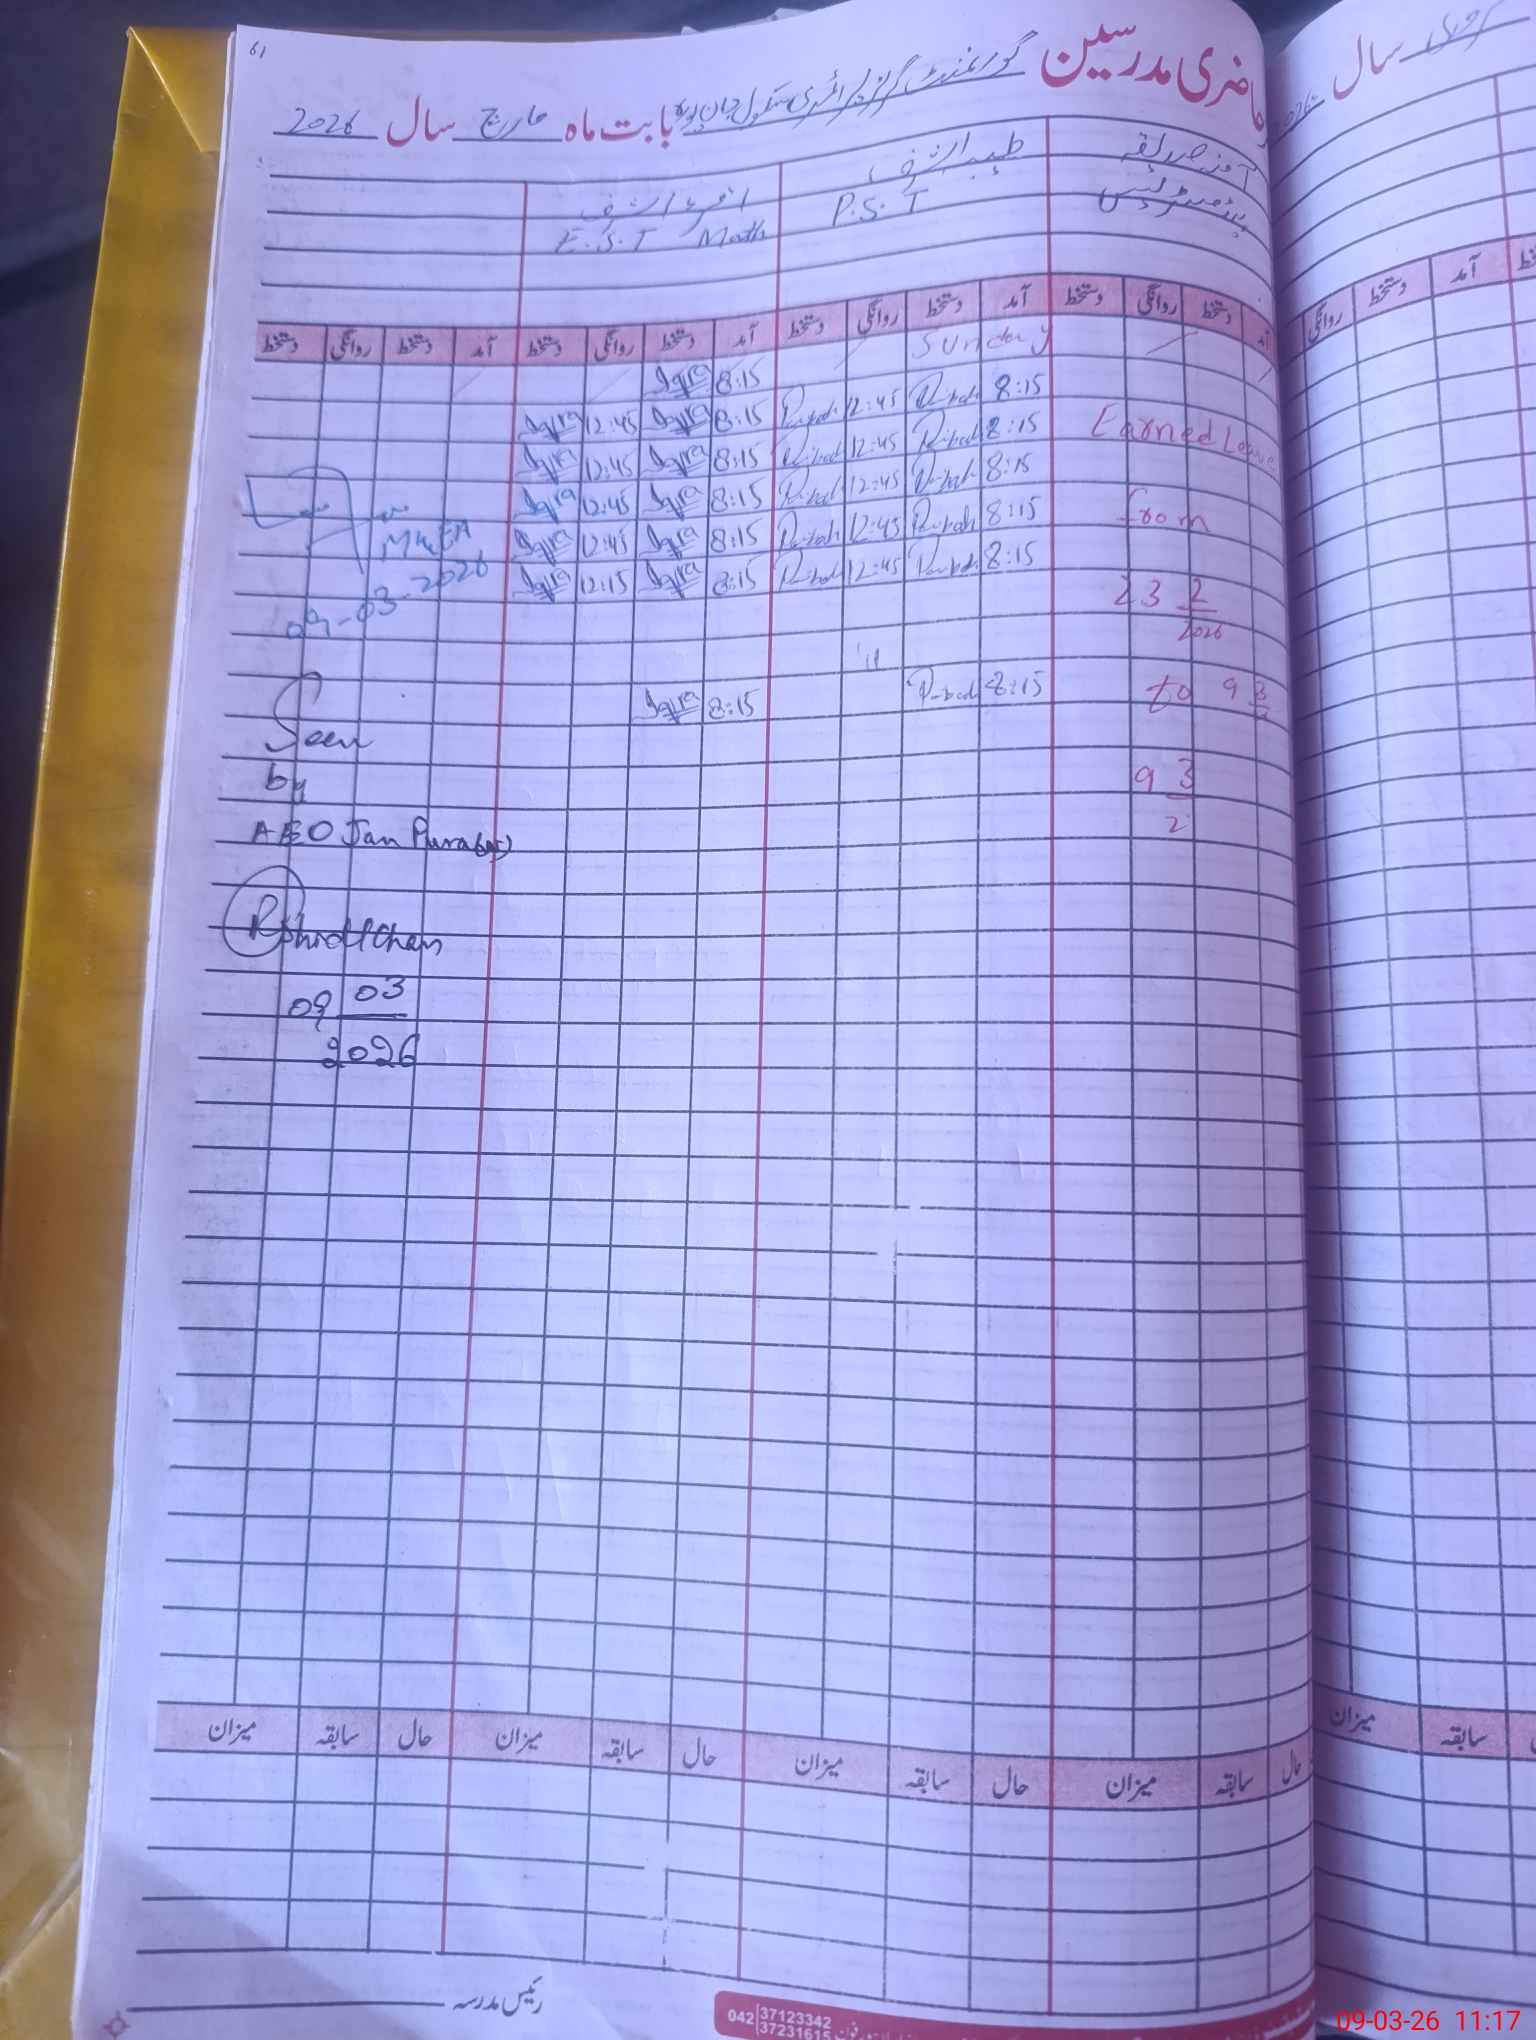 61
حاضری مدرسین گورنمنٹ گرلز پرائمری سکول جان پورہ بابت ماہ مارچ سال 2026
آمنہ صدیقہ
ہیڈمسٹریس
P.S.T
اشرف
E.S.T Math
آمد دستخط روانگی دستخط آمد دستخط روانگی دستخط آمد دستخط روانگی دستخط آمد دستخط روانگی دستخط
Sunday
8:15 Iqra
8:15 12:45 8:15 Iqra 12:45 Iqra
8:15 12:45 8:15 Iqra 12:45 Iqra
8:15 12:45 8:15 Iqra 12:45 Iqra
8:15 12:45 8:15 Iqra 12:45 Iqra
8:15 12:45 8:15 Iqra 12:15 Iqra
8:15 8:15 Iqra
Earned Leave
from
23 2
2026
to 9 3
9 3
2
09-03-2026
Seen
by
AEO Jan Pura
09 03
2026
حال سابقہ میزان حال سابقہ میزان حال سابقہ میزان حال سابقہ میزان
رئیس مدرسہ
042 37123342
37231615
سال
2026
آمد دستخط روانگی
سابقہ میزان
09-03-26 11:17